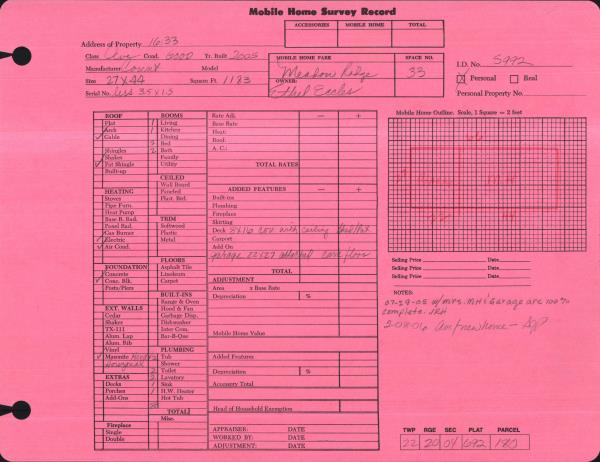 Mobile Home Survey Record
ACCESSORIES MOBILE HOME TOTAL
Address of Property 16:33
Class Ave Cond. GOOD Yr. Built 2005
Manufacturer Model
Size 27x44 Square Ft. 1183
Serial No. less 35x1.5
MOBILE HOME PARK SPACE NO.
Meadow Ridge 33
OWNER:
Ethel Eccles
I.D. No. 5992
Personal Real
Personal Property No.
ROOF
Flat
Arch
Gable
Shingles
Shakes
Pat Shingle
Built-up
HEATING
Stoves
Pipe Furn.
Heat Pump
Base B. Rad.
Panel Rad.
Gas Burner
Electric
Air Cond.
FOUNDATION
Concrete
Conc. Blk.
Posts/Piers
EXT. WALLS
Cedar
Shakes
TX-111
Alum. Lap
Alum. Rib
Vinyl
Masonite
EXTRAS
Decks
Porches
Add-Ons
Fireplace
Single
Double
ROOMS
1 Living
1 Kitchen
Dining
3 Bed
2 Bath
Family
Utility
CEILED
Wall Board
Paneled
Plast. Brd.
TRIM
Softwood
Plastic
Metal
FLOORS
Asphalt Tile
Linoleum
Carpet
BUILT-INS
Range & Oven
Hood & Fan
Garbage Disp.
Dishwasher
Inter Com.
Bar-B-Que
PLUMBING
Tub
Shower
2 Toilet
Lavatory
1 Sink
1 H.W. Heater
Hot Tub
TOTAL
Misc.
Rate Adj. — +
Base Rate
Heat:
Roof:
A. C.:
TOTAL RATES
ADDED FEATURES — +
Built-ins
Plumbing
Fireplace
Skirting
Deck 8x16 cov. with ceiling
Carport
Add On
garage 22x27 attached conc floor
TOTAL
ADJUSTMENT
Area x Base Rate
Depreciation %
Mobile Home Value
Added Features
Depreciation %
Accessory Total
Head of Household Exemption
APPRAISER: DATE
WORKED BY: DATE
ADJUSTMENT: DATE
Mobile Home Outline. Scale, 1 Square = 2 feet
Selling Price Date
Selling Price Date
Selling Price Date
NOTES:
07-29-05 w/mrs. MH & Garage are 100%
complete. JRH
2-08-06 on/new/home -
TWP RGE SEC PLAT PARCEL
22 20 04 692 180